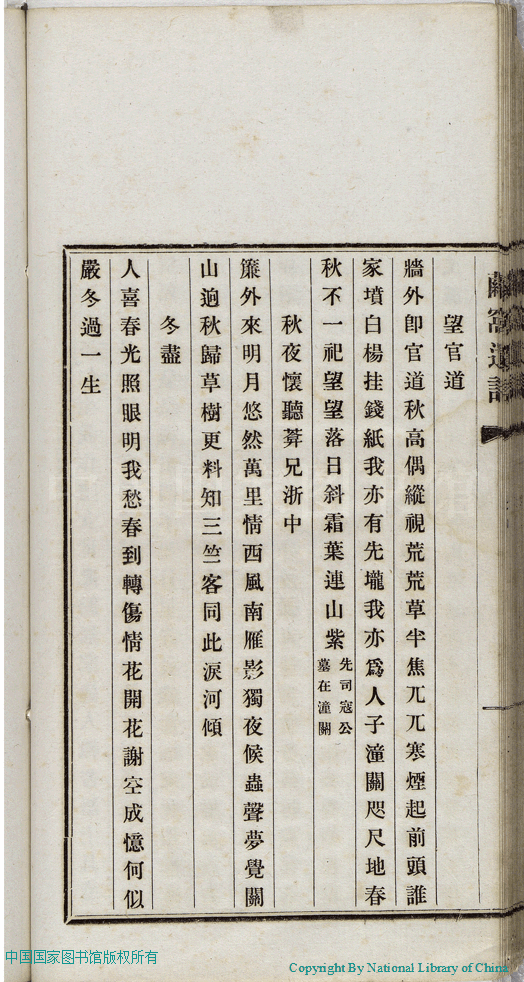 望官道
牆外卽官道秋高偶縱視荒荒草半焦兀兀寒煙起前頭誰
家墳白楊挂錢紙我亦有先壠我亦爲人子潼關咫尺地春
秋不一祀望望落日斜霜葉連山紫先司寇公
墓在潼關
秋夜懷聽筭兄浙中
簾外來明月悠然萬里情西風南雁影獨夜候蟲聲夢覺關
山逈秋歸草樹更料知三竺客同此淚河傾
冬盡
人喜春光照眼明我愁春到轉傷情花開花謝空成憶何似
嚴冬過一生
中国国家图书馆版权所有
Copyright By National Library of China